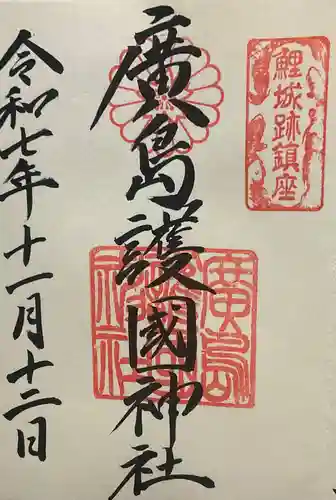 鯉城跡鎮座
廣島護國神社
廣島護國神社
令和七年十一月十二日